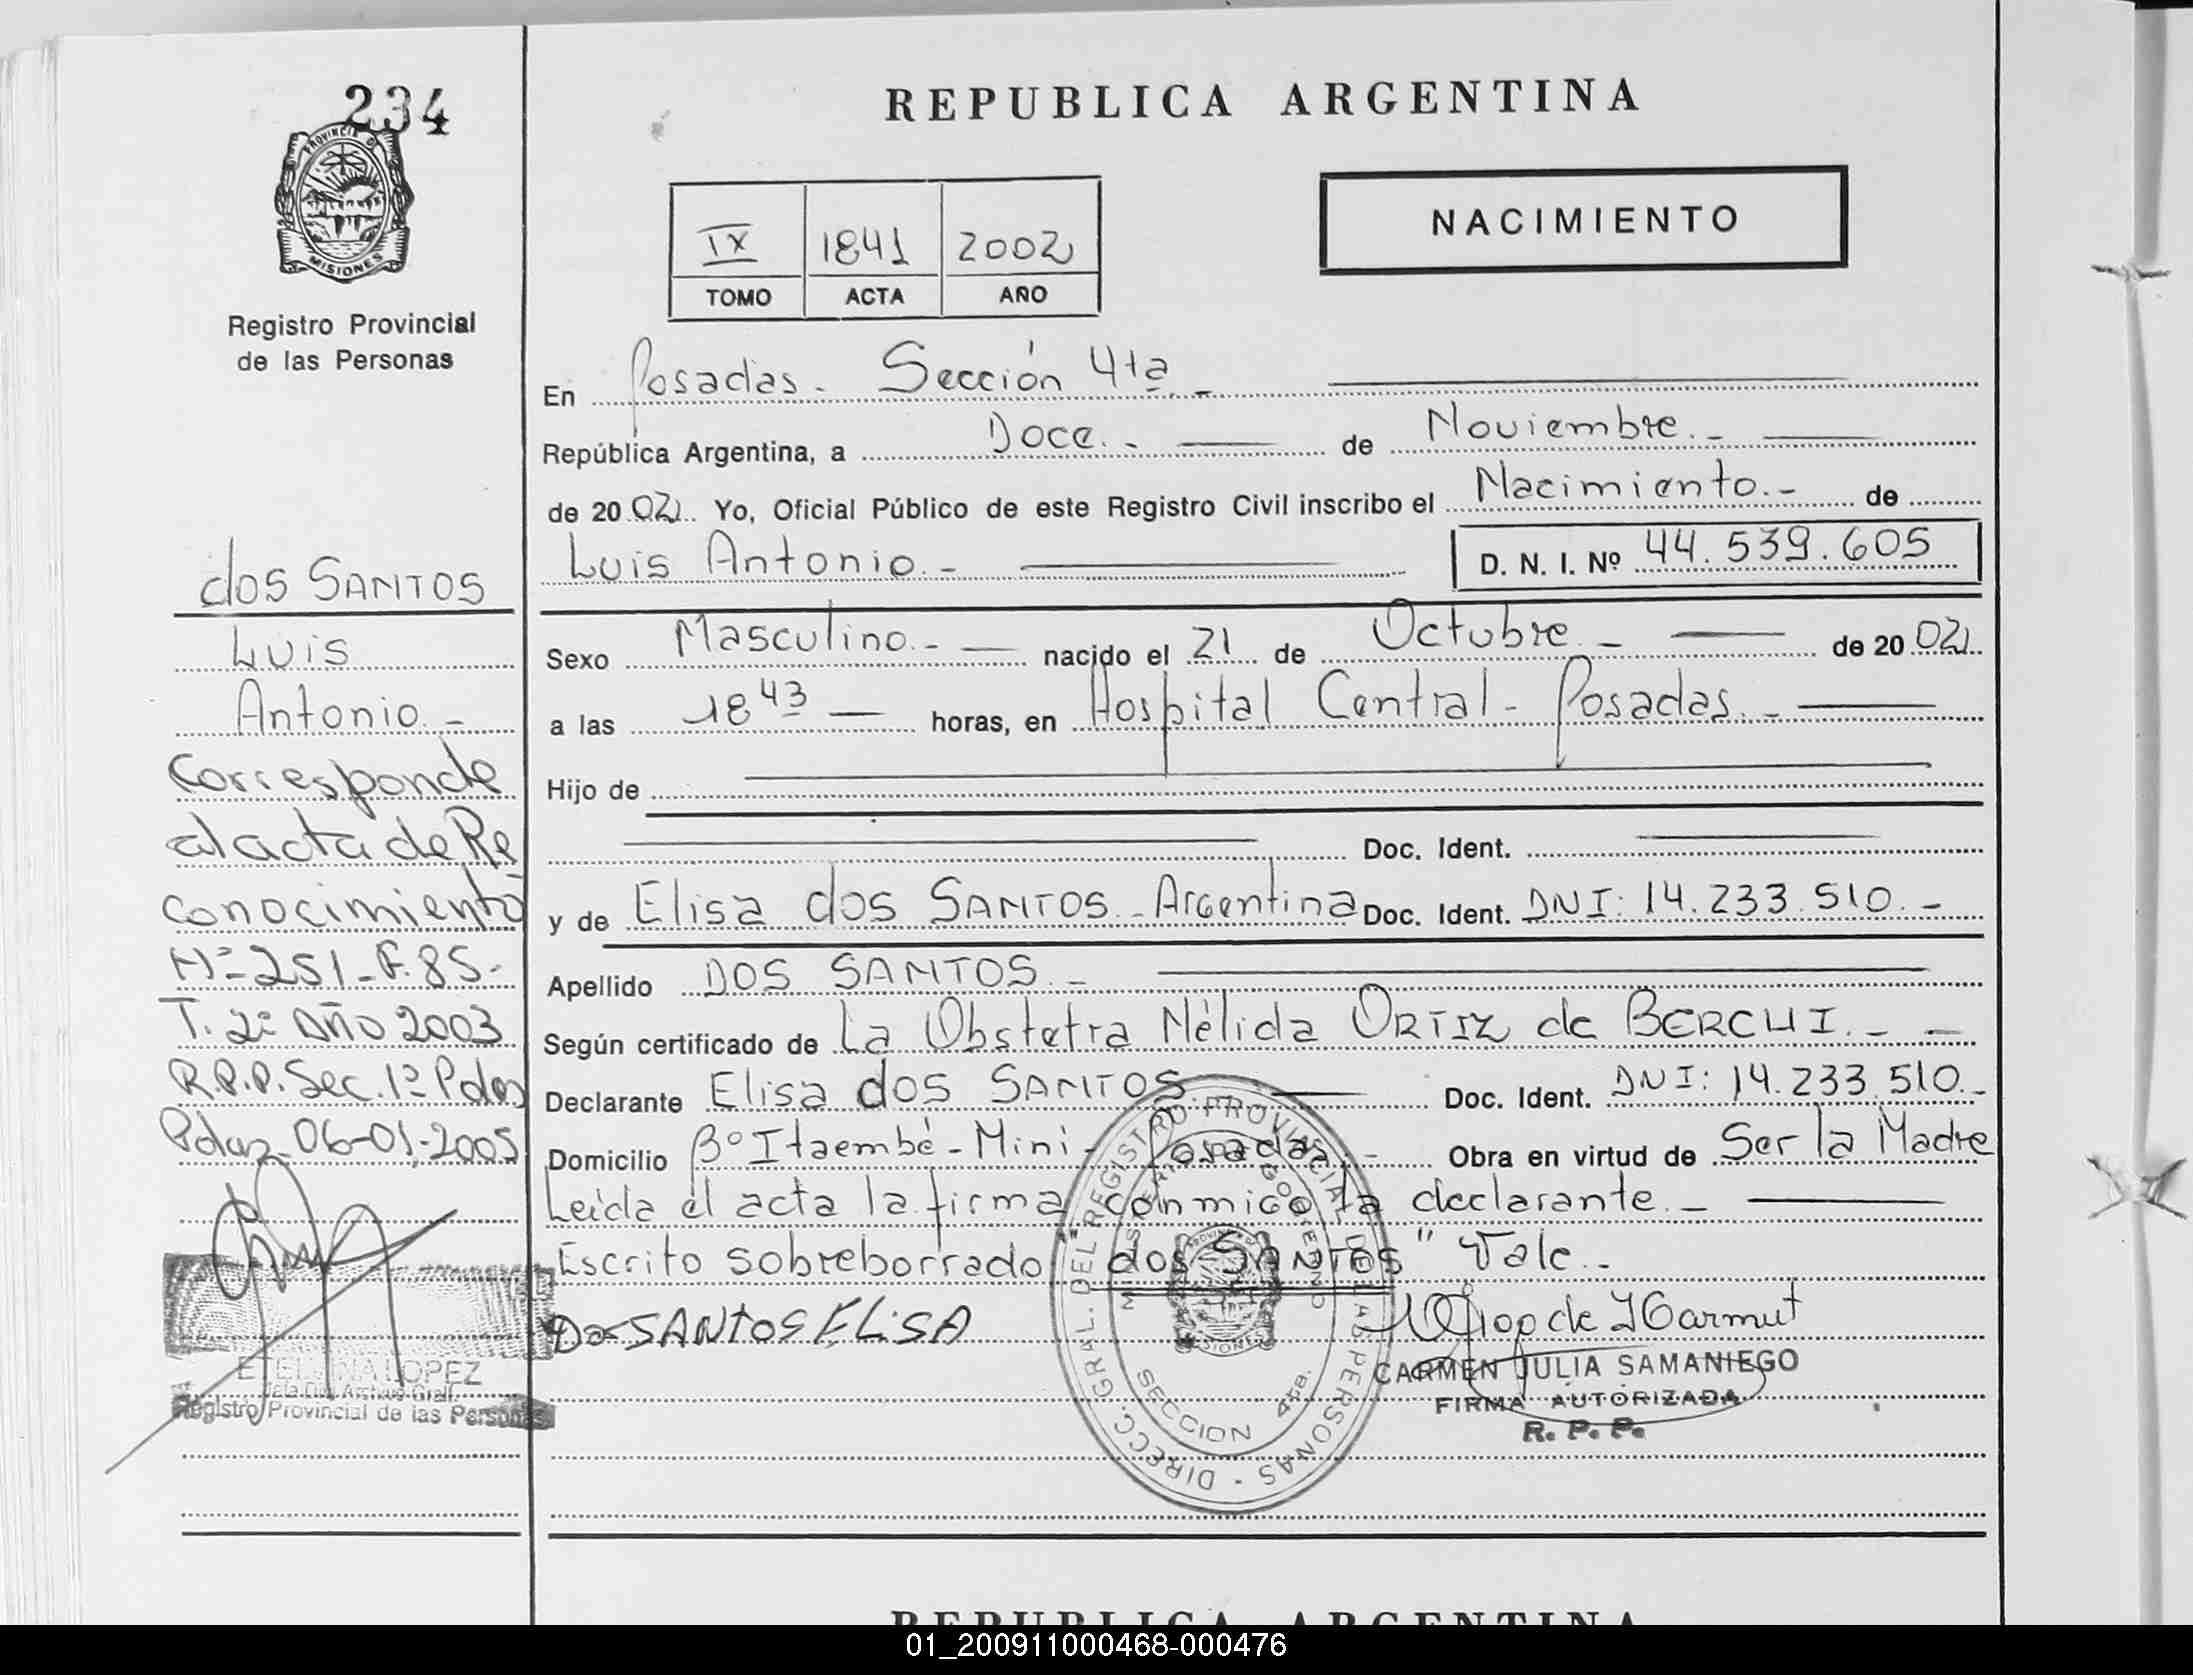 234
PROVINCIA DE
MISIONES
Registro Provincial
de las Personas
dos SANTOS
Luis
Antonio.-
Corresponde
al acta de Re
conocimiento
Nº-251-F.85-
T. 2º Año 2003
R.P.P. Sec. 1º Pdas
Pdas 06-01-2005
ETELVINA LOPEZ
Registro Provincial de las Personas
REPUBLICA ARGENTINA
NACIMIENTO
IX 1841 2002
TOMO ACTA AÑO
En Posadas. Sección 4ta.-
República Argentina, a Doce.- de Noviembre.-
de 20 02. Yo, Oficial Público de este Registro Civil inscribo el Nacimiento.- de
Luis Antonio.- D. N. I. Nº 44.539.605
Sexo Masculino.- nacido el 21 de Octubre.- de 20 02.
a las 18 43 horas, en Hospital Central - Posadas.-
Hijo de
Doc. Ident.
y de Elisa dos SANTOS.-Argentina Doc. Ident. DNI: 14.233.510.-
Apellido DOS SANTOS.-
Según certificado de La Obstetra Nélida ORTIZ de BERCHI.-
Declarante Elisa dos SANTOS Doc. Ident. DNI: 14.233.510.-
Domicilio Bº Itaembé-Mini- Posadas.- Obra en virtud de Ser la Madre
Leída el acta la firma conmigo la declarante.-
Escrito sobreborrado "dos SANTOS" Vale.-
Dos SANtOS ELiSA
CARMEN JULIA SAMANIEGO
FIRMA AUTORIZADA
R. P. P.
DIRECC. GRAL. DEL REGISTRO PROVINCIAL DE LAS PERSONAS
SECCION 4ta.
REPUBLICA ARGENTINA
01_200911000468-000476